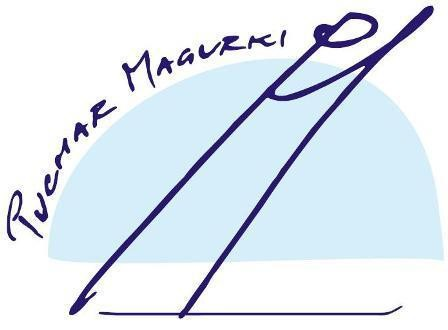 PUCHAR MAGURKI